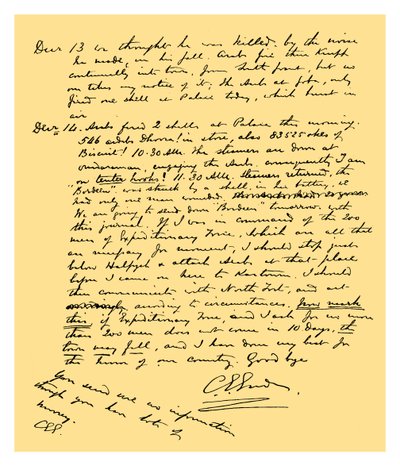 Decr 13 we thought he was killed by the noise
he made, in his fall. Arabs fire their Krupp
continually into town, from south front, but no
one takes any notice of it; the Arabs at fort, only
fired one shell at Palace today, which burst in
air
Decr 14. Arabs fired 2 shells, at Palace this morning.
546 ardebs Dhoora! in store, also 83525 okes of
Biscuit! 10.30 AM. The steamers are down at
Omdurman, engaging the Arabs, consequently I am
"on tenter hooks"! 11.30 AM. Steamers returned, the
"Bordeen" was struck by a shell, in her battery, we
had only one man wounded.
We are going to send down "Bordeen" tomorrow with
this journal. If I was in command of the 200
men of Expeditionary Force, which are all that
are necessary for moment, I should stop just
below Halfyeh & attack Arabs, at that place
before I came on here to Kartoum. I should
then communicate with North Fort, and act
according to circumstances. Now mark
this, if Expeditionary Force, and I ask for no more
than 200 men does not come in 10 days, the
town may fall, and I have done my best for
the honor of our country. Good bye
C G Gordon
You send me no information
though you have lots of
money.
CGG.